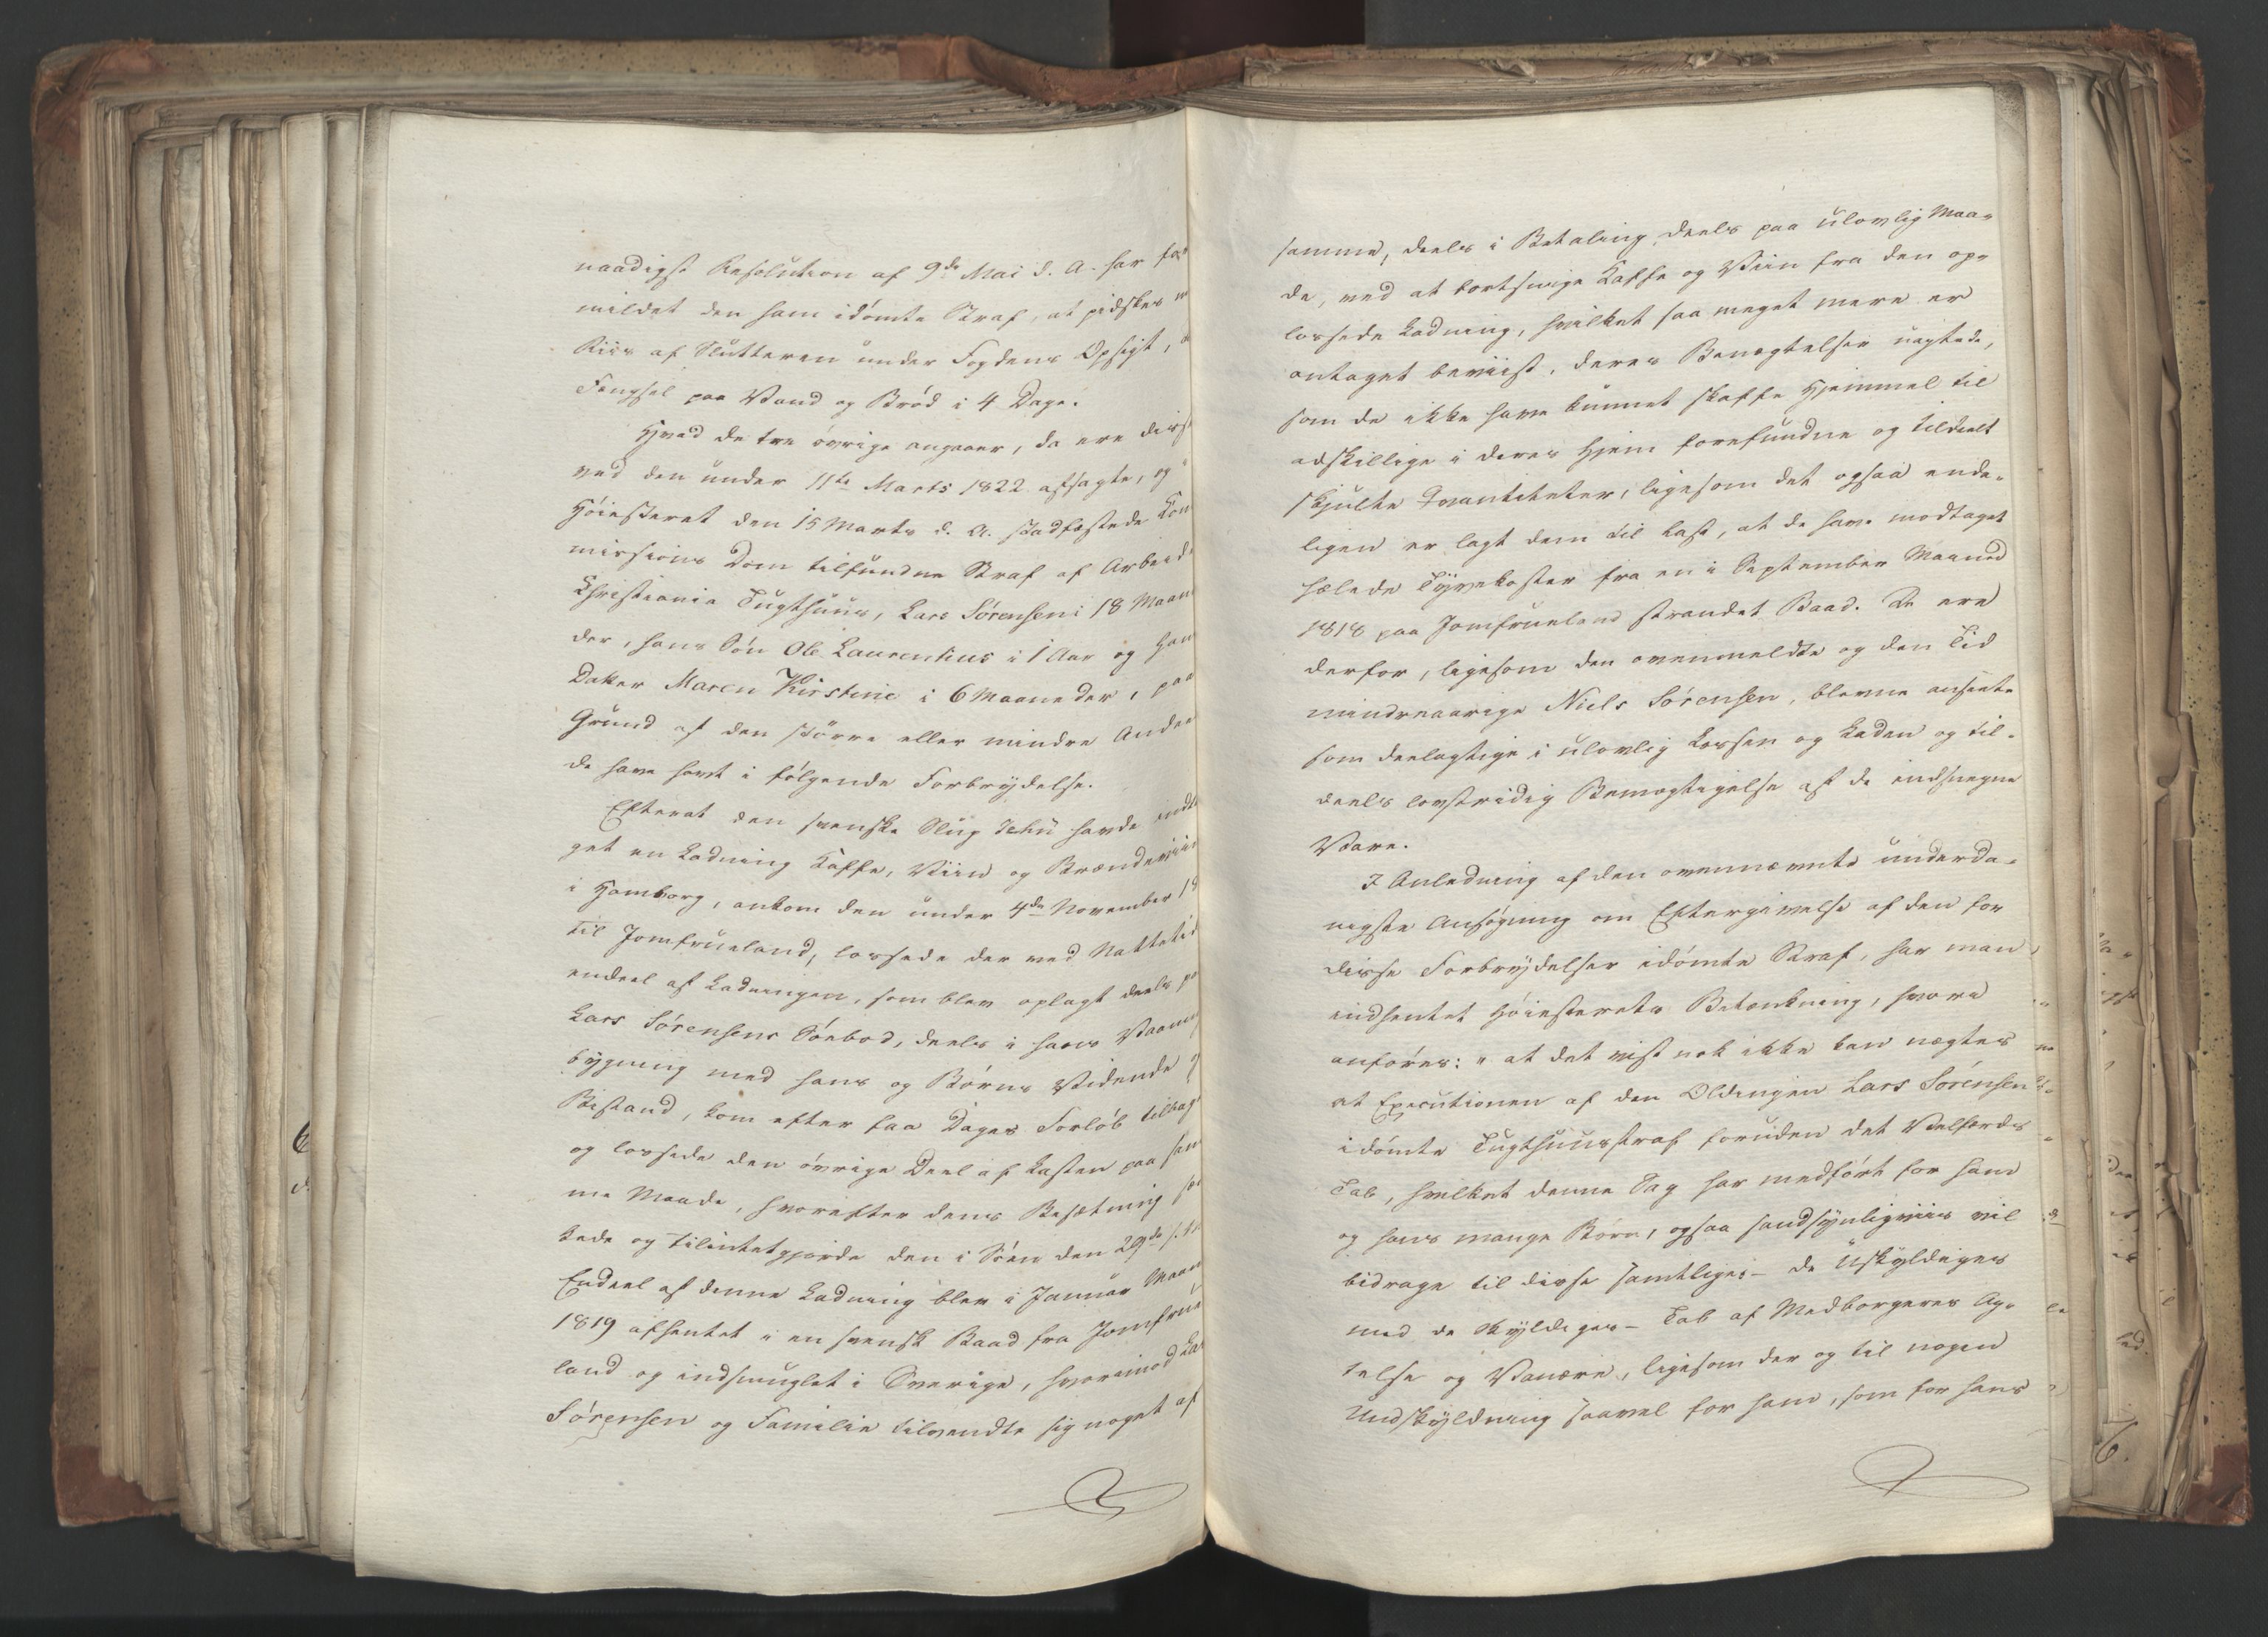 naadigst Resolution af 9de Mai d. A. har for
mildet den ham idömte Straf, at pidskes m
Riis af Slutteren under Fogdens Opsigt,
Fængsel paa Vand og Bröd i 4 Dage.
Hvad de tre övrige angaaer, da ere diss
ved den under 11te Marts 1822 afsagte, og
Höiesteret den 15 Marts d. A. stadfæstede Kom
missions Dom tilfundne Straf af Arbeide
Christiania Tugthuus, Lars Sörensen i 18 Maane
der, hans Sön Ole Laurentius i 1 Aar og hans
Datter Maren Kirstine i 6 Maaneder, paa
Grund af den större eller mindre Andeel
de have havt i fölgende Forbrydelse.
Efterat den svenske Slup Jehu havde indta
get en Ladning Kaffe, Viin og Brændeviin
i Hamborg, ankom den under 4de November 18
til Jomfrueland, lossede der ved Nattetid
endeel af Ladningen, som blev oplagt deels paa
Lars Sörensens Söebod, deels i hans Vaanings
bygning med hans og Börns Vidende og
Bistand, kom efter faa Dages Forlöb tilbage
og lossede den övrige Deel af Lasten paa sam
me Maade, hvorefter dens Besætning sæn
kede og tilintetgjorde den i Söen den 29de s. M.
Endeel af denne Ladning blev i Januar Maaned
1819 afhentet i en svensk Baad fra Jomfrue
land og indsmuglet i Sverige, hvorimod Lars
Sörensen og Familie tilvendte sig noget af
samme, deels i Betaling, deels paa ulovlig Maa-
de, ved at bortsnige Kaffe og Viin fra den op-
lossede Ladning, hvilket saa meget mere er
antaget beviist, deres Benægtelser uagtede,
som de ikke have kunnet skaffe Hjemmel til
adskillige i deres Hjem forefundne og tildeelt
skjulte Qvantiteter, ligesom det ogsaa ende-
ligen er lagt dem til Last, at de have modtaget
hælede Tyvekoster fra en i September Maaned
1818 paa Jomfrueland strandet Baad. De ere
derfor, ligesom den ovenmeldte og den Tid
mindreaarige Niels Sörensen, blevne anseete
som deelagtige i ulovlig Lossen og Laden og til-
deels lovstridig Bemægtigelse af de indsnegne
Vare.
I Anledning af den ovennævnte underda-
nigste Ansögning om Eftergivelse af den for
disse Forbrydelser idömte Straf, har man
indhentet Höiesterets Betænkning, hvori
anföres: "at det vist nok ikke kan nægtes
at Executionen af den Oldingen Lars Sörensen
idömte Tugthuusstraf foruden det Velfærds
Tab, hvilket denne Sag har medfört for ham
og hans mange Börn, ogsaa sandsynligviis vil
bidrage til disse samtliges – de Uskyldiges
med de Skyldiges – Tab af Medborgeres Ag-
telse og Vanære, ligesom der og til nogen
Undskyldning saavel for ham, som for hans